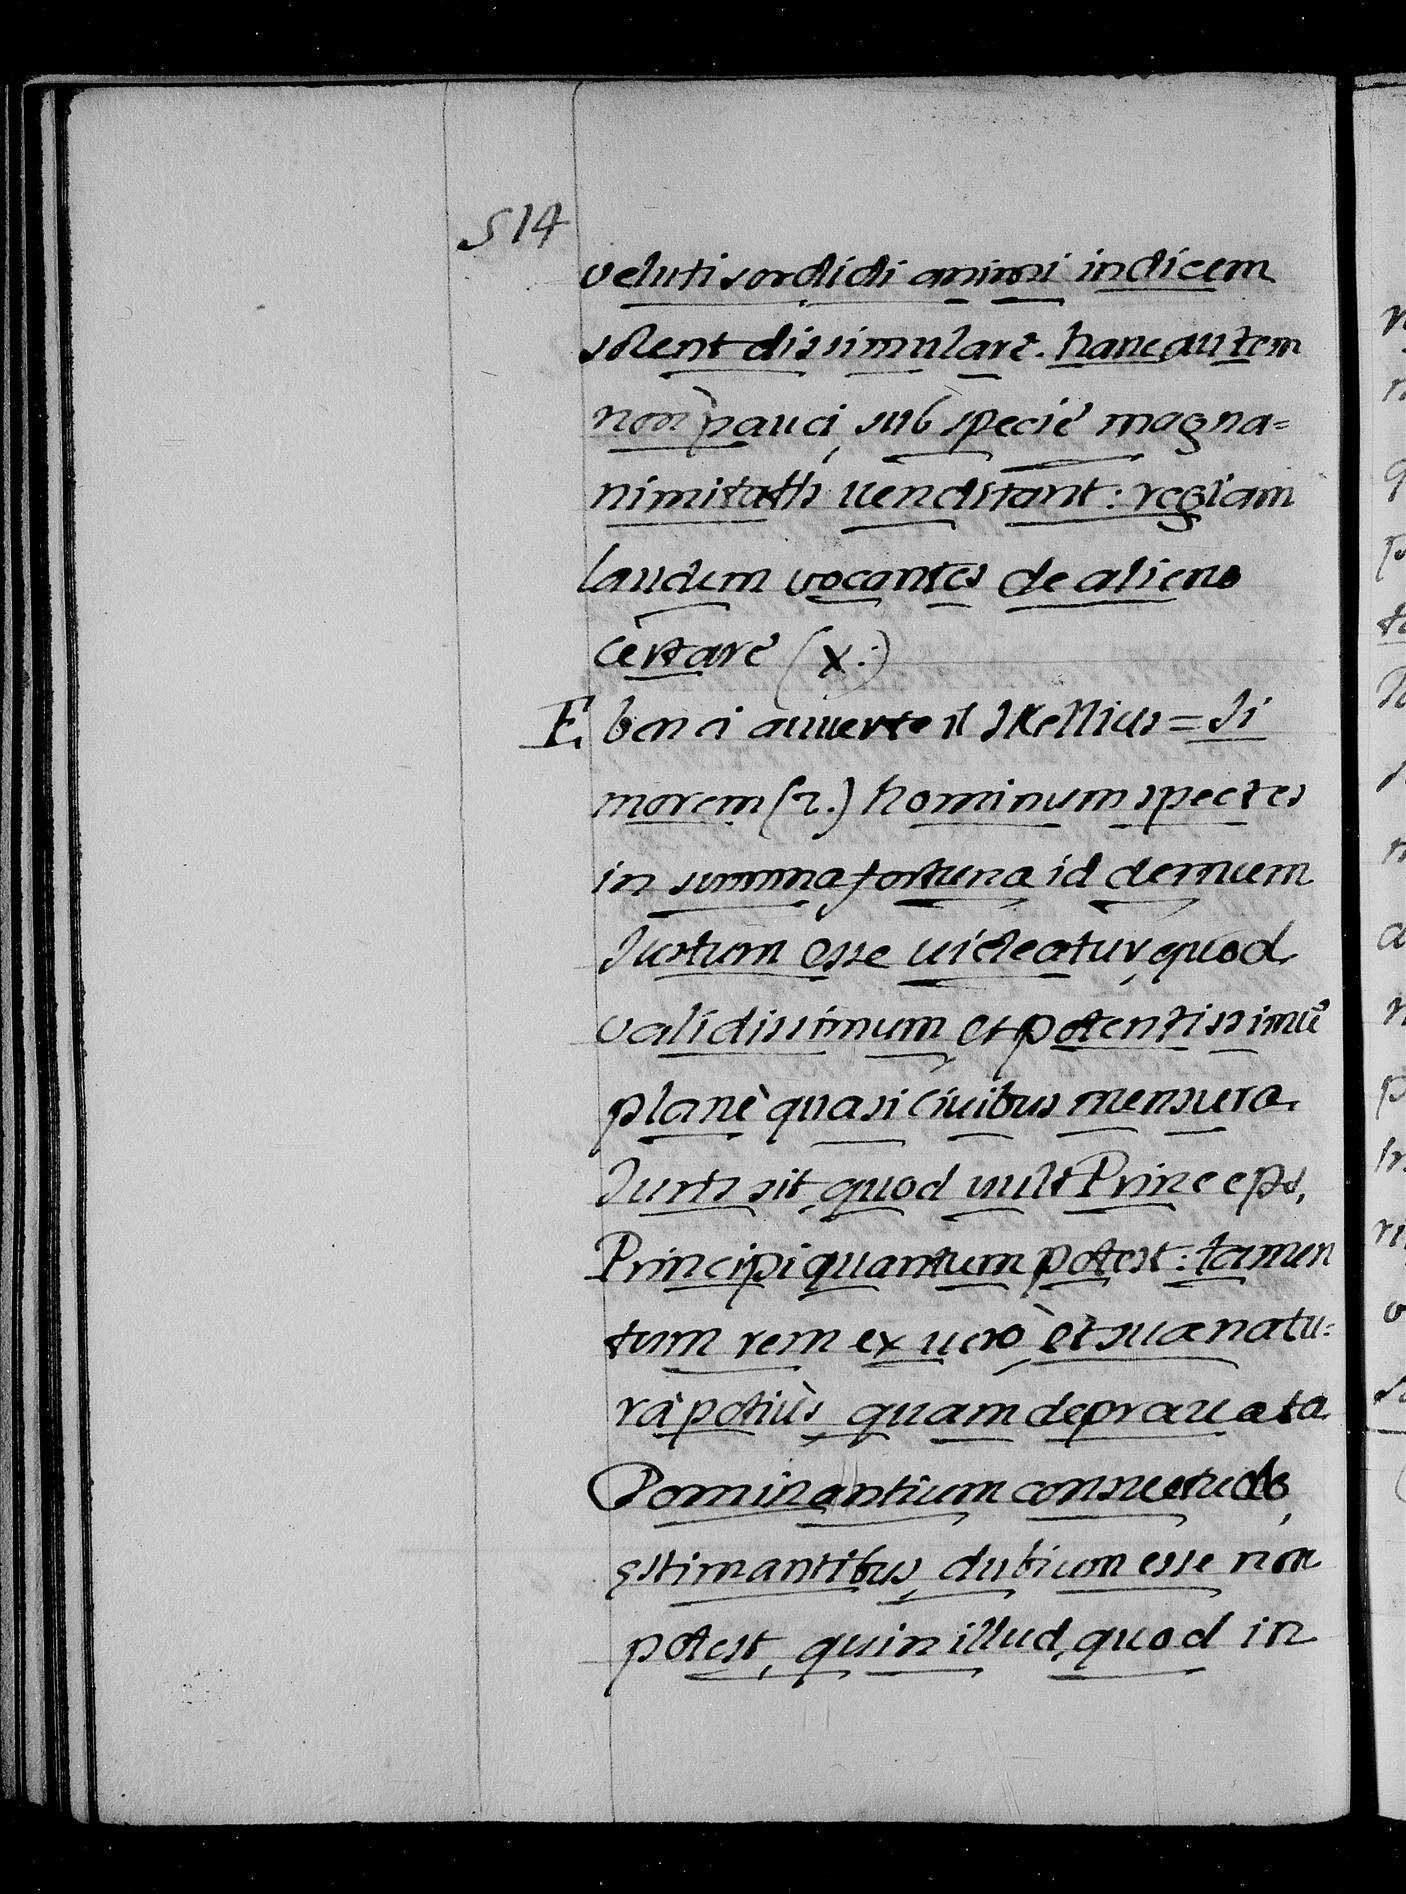 514
veluti sordidi animi indicem
solent dissimulare. hanc autem
non pauci, sub specie magna=
nimitatis uenditant: regiam
laudem vocantes de alieno
certare (X.)
E, ben ci auuerte il Skellius = Si
morem (2.) hominum spectes
in summa fortuna id demum
Iustum esse uideatur, quod
validissimum et potentissimũ
planè quasi Ciuibus mensura
Iuris sit, quod uult Princeps,
Principi quantum potest: tamen
tum rem ex uero, et sua natu=
rà potiùs, quam deprauata
Dominantium consuetudo,
ęstimantibus, dubium esse non
potest, quin illud, quod in